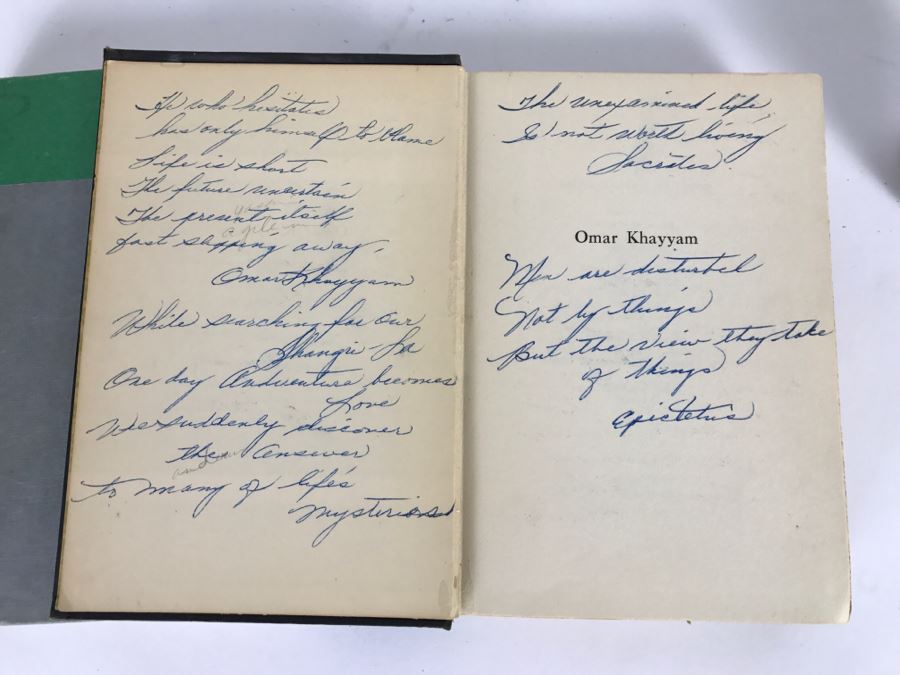 He who hesitates
has only himself to blame
Life is short
The future uncertain
The present itself
fast slipping away,
Omar Khayyam
While searching for our
Shangri-La
One day Andventure becomes
Love
We suddenly discover
the Answer
to many of life's
Mysteries
The unexamined life,
Is not worth living
Socrates
Omar Khayyam
Men are disturbed
Not by things
But the view they take
of things
Epictetus